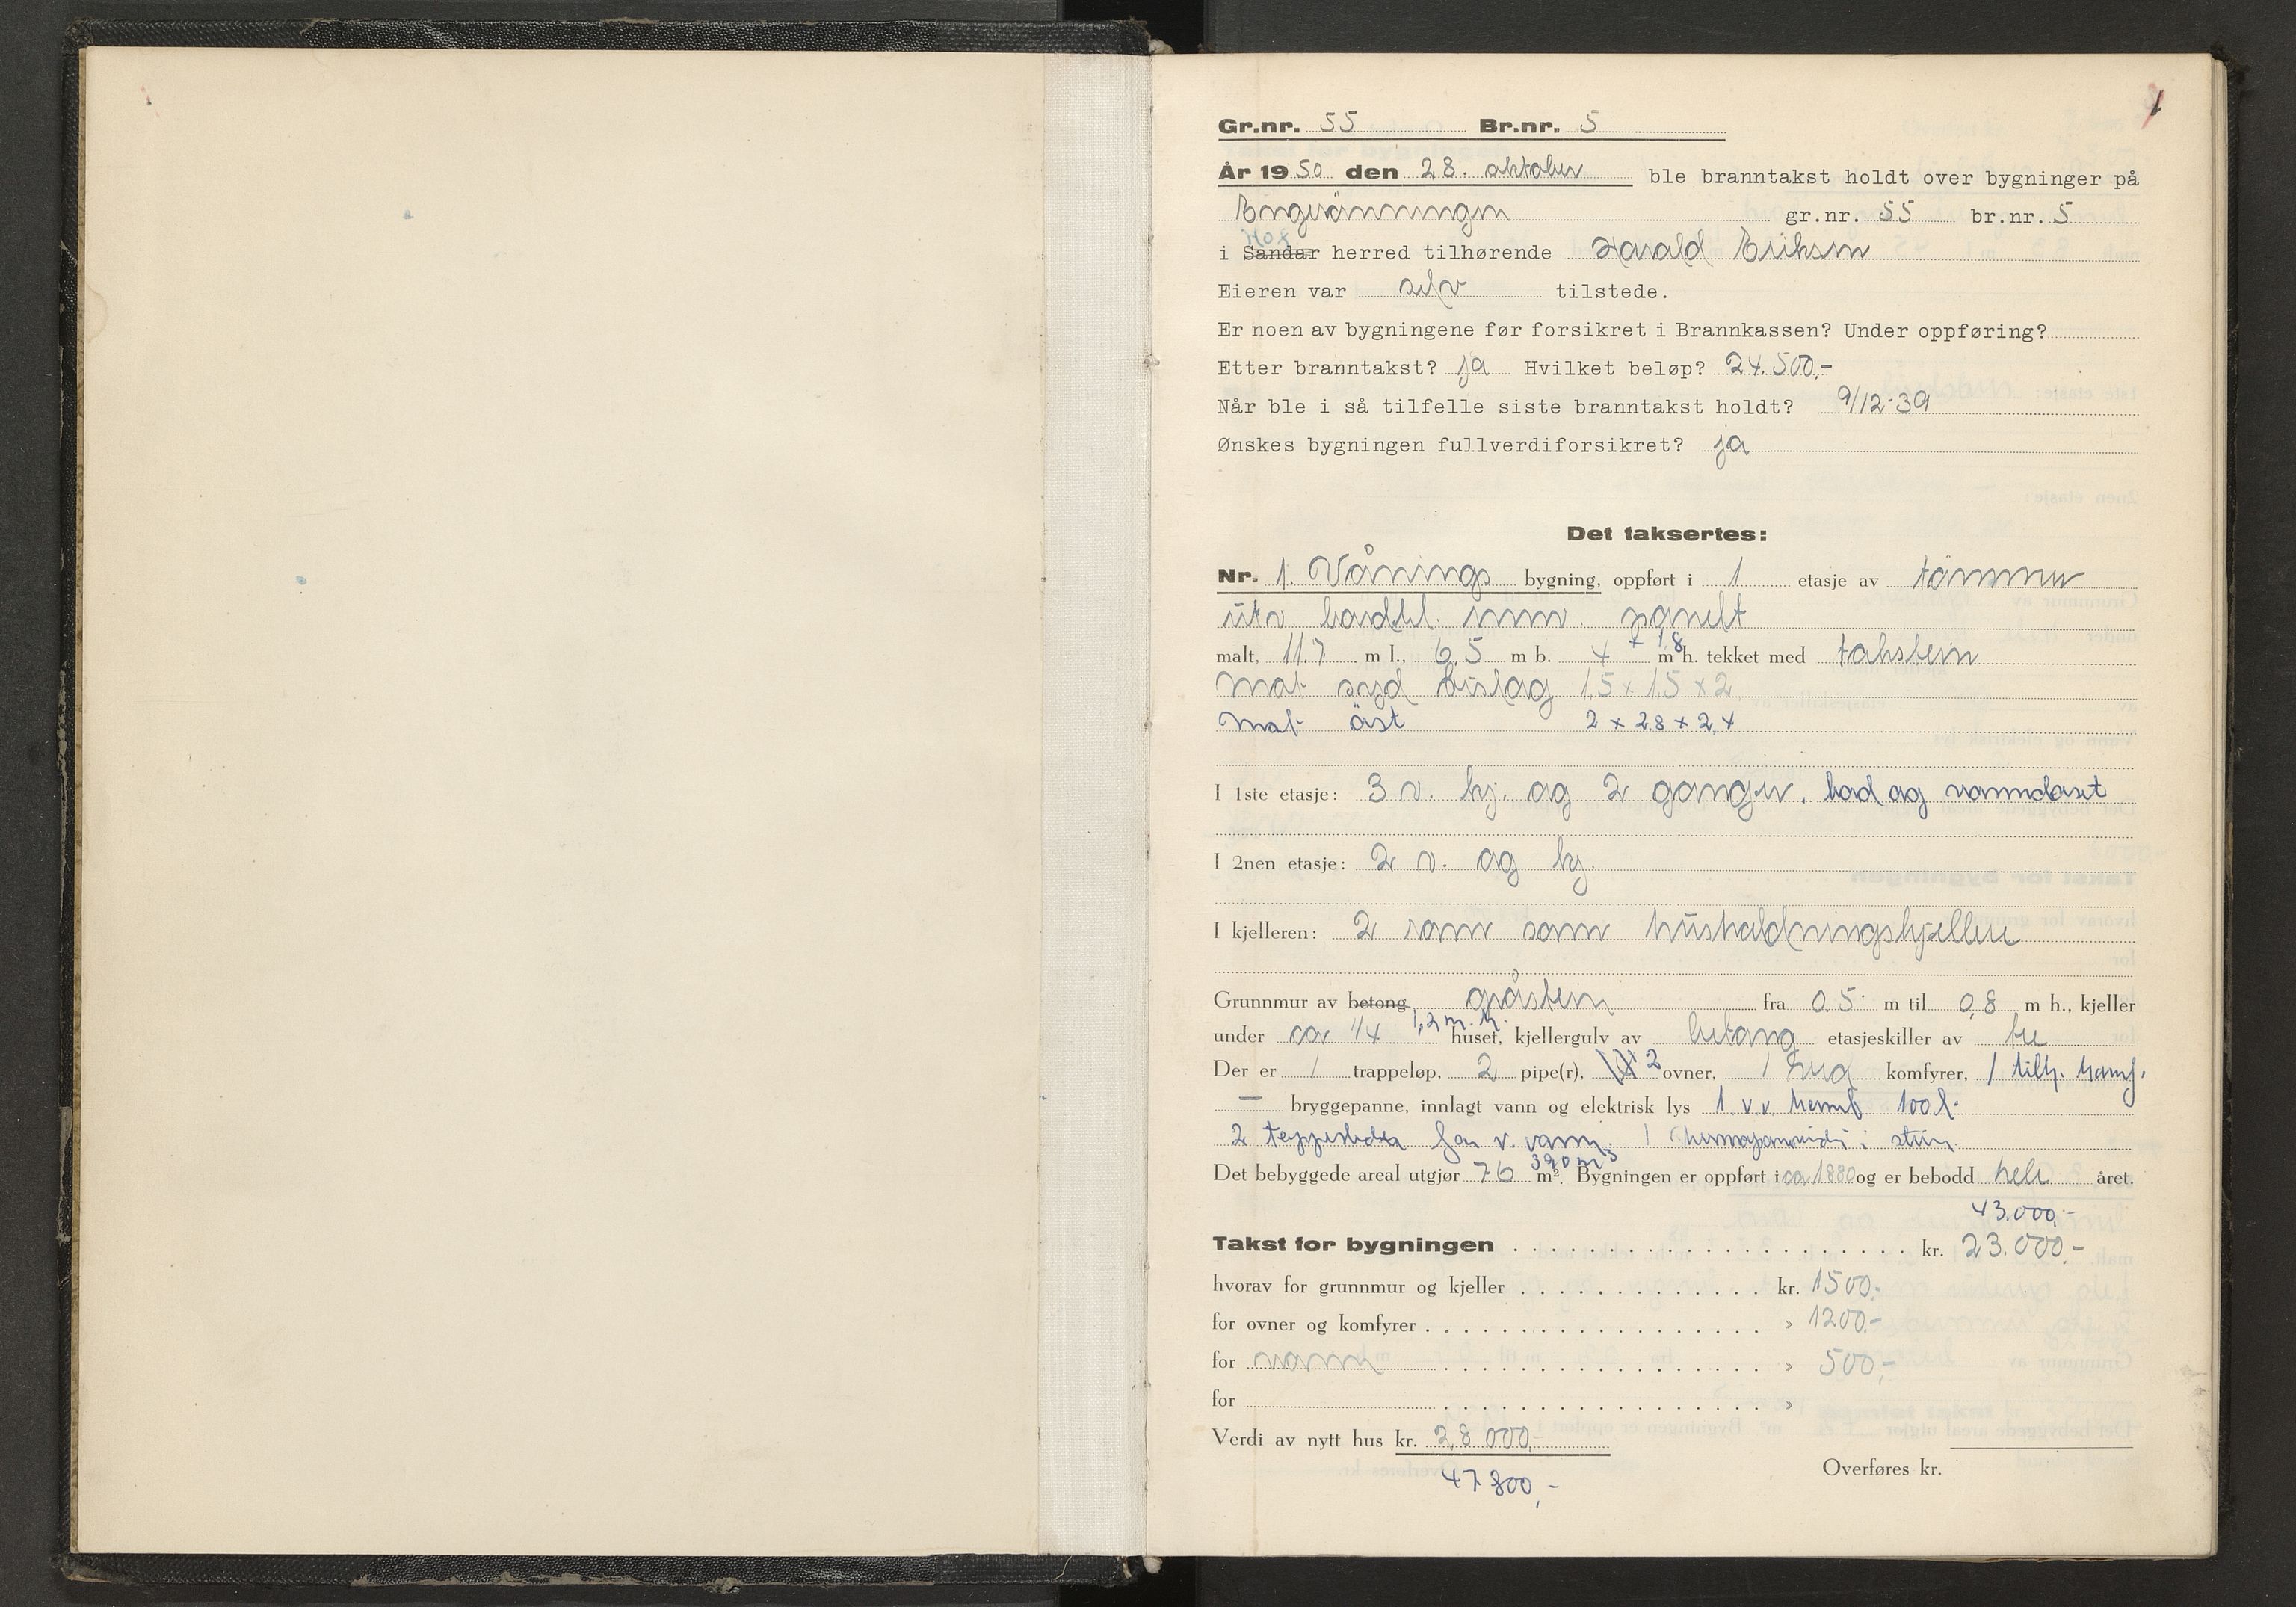 1
Gr.nr. 55 Br.nr. 5
År 1950 den 28. oktober ble branntakst holdt over bygninger på
gr.nr. 55 br.nr. 5
Hof
i Sandar herred tilhørende Harald Eriksen
Eieren var selv tilstede.
Er noen av bygningene før forsikret i Brannkassen? Under oppføring?
Etter branntakst? ja Hvilket beløp? 24.500,-
Når ble i så tilfelle siste branntakst holdt? 9/12-39
Ønskes bygningen fullverdiforsikret? ja
Det taksertes:
Nr. 1. Vånings bygning, oppført i 1 etasje av tømmer
utv. bordkl. innv. panelt
+ 1,8
malt, 11.7 m l., 6,5 m b. 4 m h. tekket med takstein
Mot syd bislag 1,5 x 1,5 x 2
Mot øst 2 x 2,8 x 2,4
I 1ste etasje: 3 v. kj. og 2 ganger. bad og vanncloset
I 2nen etasje: 2 v. og kj.
I kjelleren: 2 rom som husholdningskjellere
Grunnmur av betong gråstein fra 0.5 m til 0,8 m h., kjeller
1,2 m. h.
under ca 1/4 huset, kjellergulv av betong etasjeskiller av tre
Der er 1 trappeløp, 2 pipe(r), 2 ovner, 1 komfyrer, 1 tilk. komf.
— bryggepanne, innlagt vann og elektrisk lys 1 v.v. 100 l.
2 for v. vann. 1 i
390 m3
Det bebyggede areal utgjør 76 m². Bygningen er oppført i ca 1880 og er bebodd hele året.
43.000,-
Takst for bygningen kr. 23.000,-
hvorav for grunnmur og kjeller kr. 1500,-
for ovner og komfyrer » 1200,-
for vann » 500,-
for »
Verdi av nytt hus kr. 28 000,
Overføres kr.
47 800,-